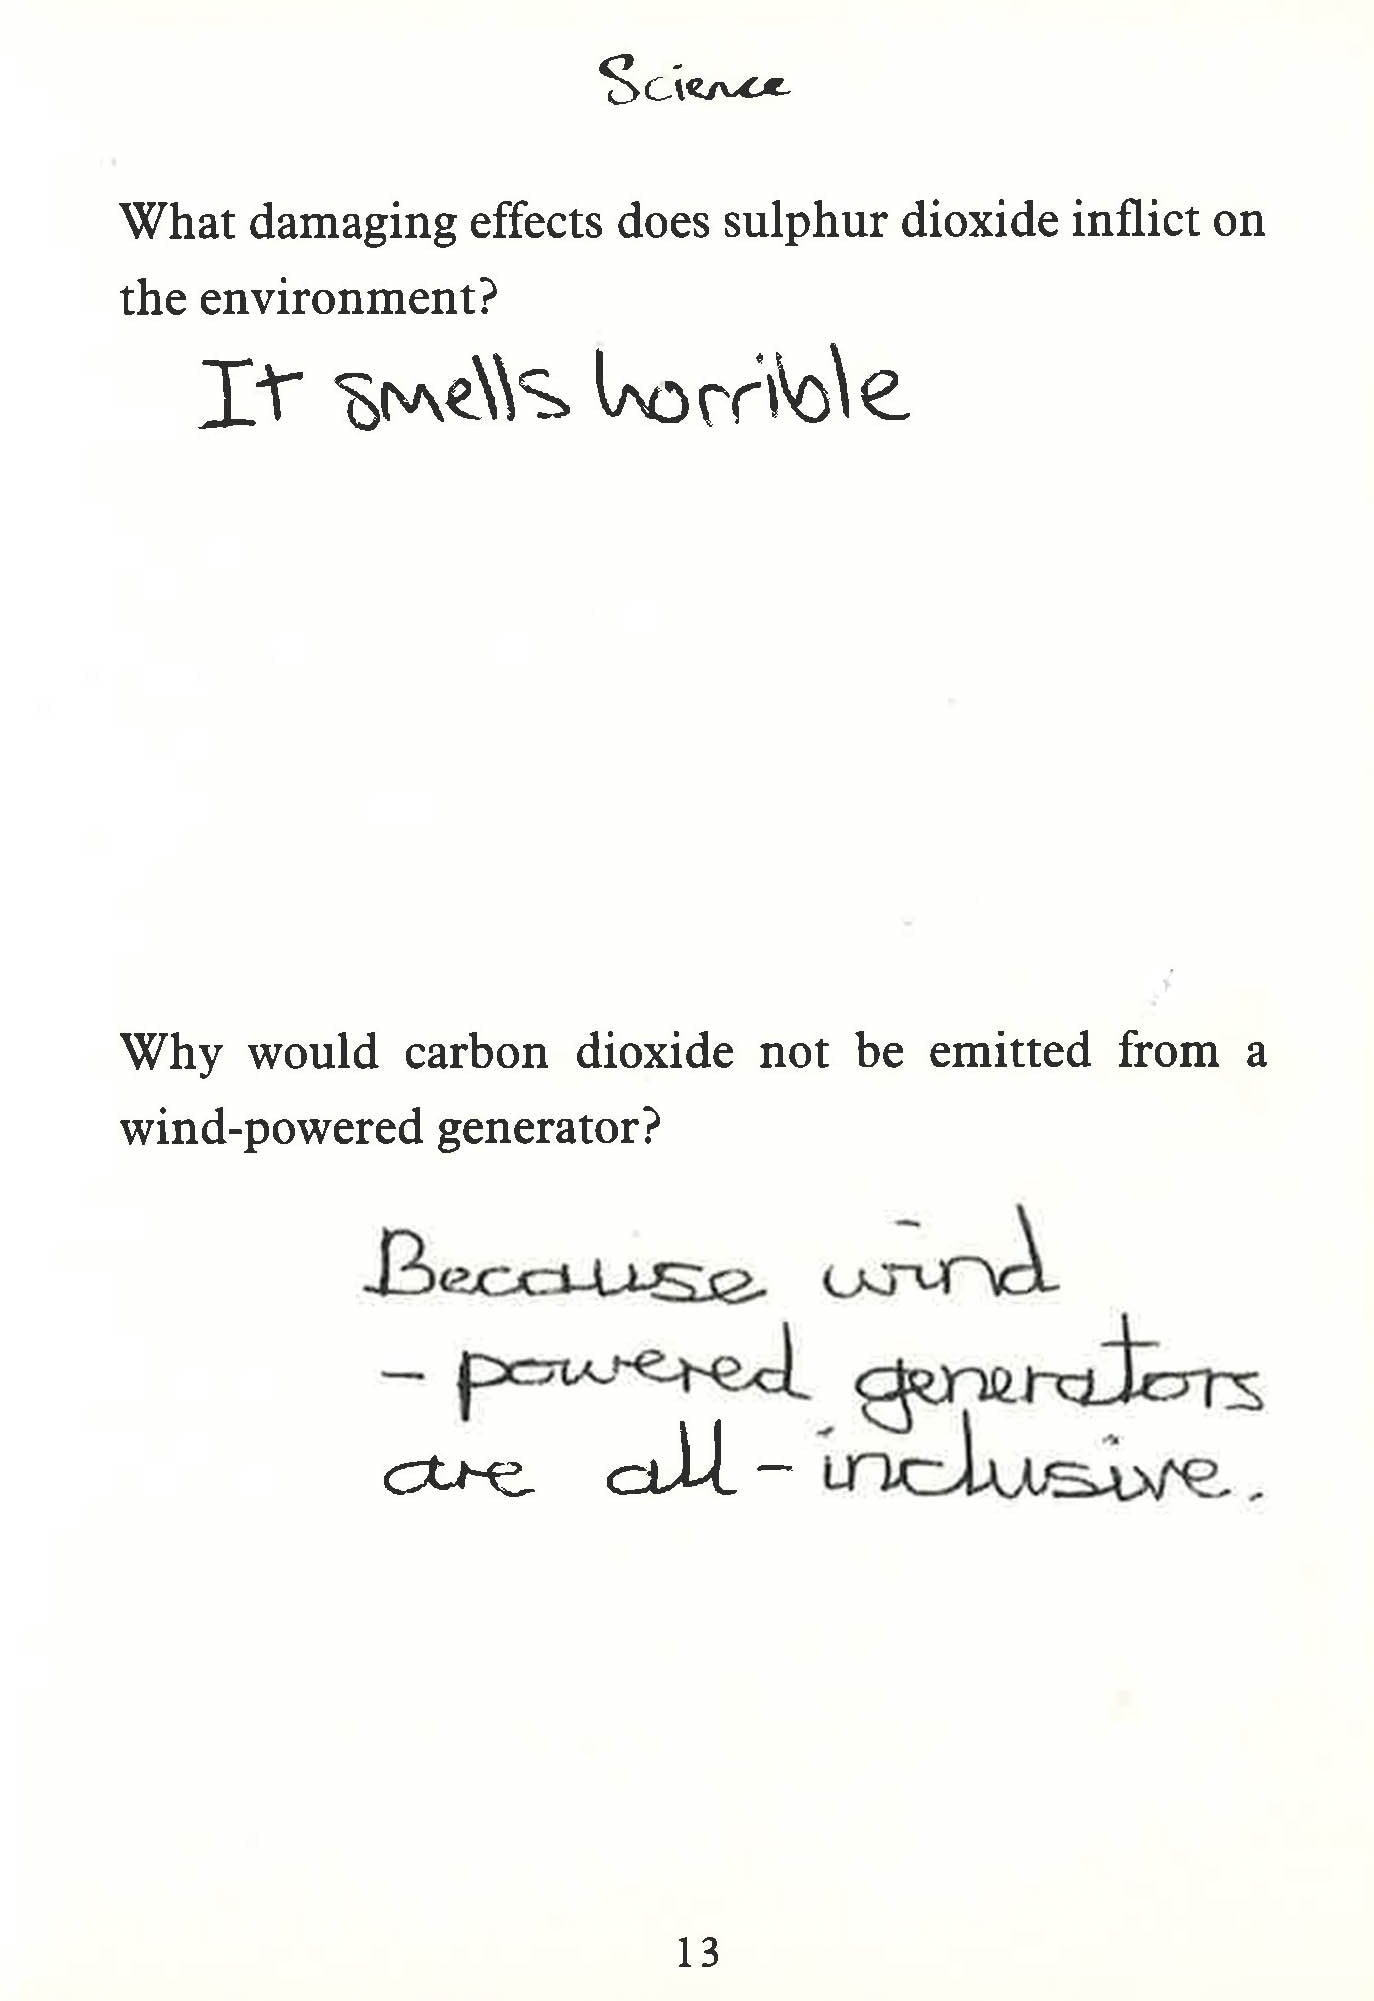 Science
What damaging effects does sulphur dioxide inflict on
the environment?
It smells horrible
Why would carbon dioxide not be emitted from a
wind-powered generator?
Because wind
- powered generators
are all-inclusive.
13